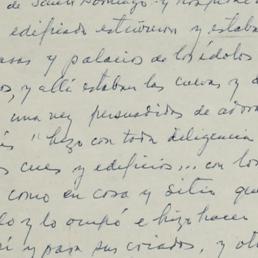 de Santo Domingo y hospital
edificado estuvieron y estaban
casas y palacios de los ídolos
os, y allí estaban las cuevas y
una vez persuadidos de
"hizo con toda diligencia
cues y edificios... con los
como en cosa y sitio que
lo y lo ocupó e hizo hacer
y para sus criados, y